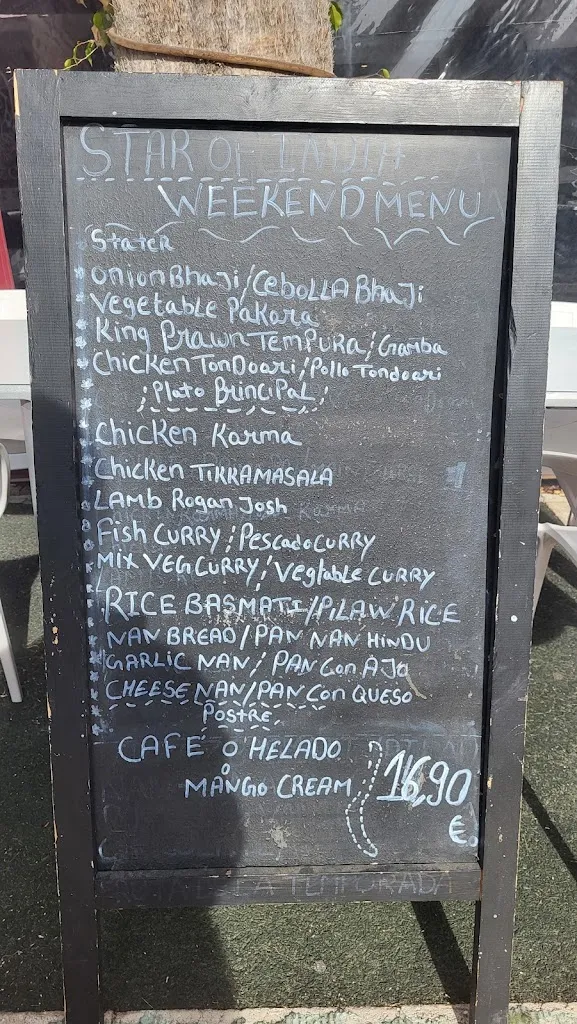 STAR OF INDIA
WEEKEND MENU
Stater
onion Bhaji/Cebolla Bhaji
Vegetable Pakara
King Prawn Tempura/Gamba
Chicken Tondoori/Pollo Tondoori
Plato Brincipal
Chicken Karma
Chicken TIKKAMASALA
LAMB Rogan Josh
Fish CURRY/Pescado CURRY
MIX VEG CURRY/Vegtable CURRY
RICE BASMATI/PILAW RICE
NAN BREAD/PAN NAN HINDU
GARLIC NAN/PAN Con AJO
CHEESE NAN/PAN Con QUESO
Postre
CAFE O'HELADO
o
MANGO CREAM
16,90
€
LA TEMPORADA